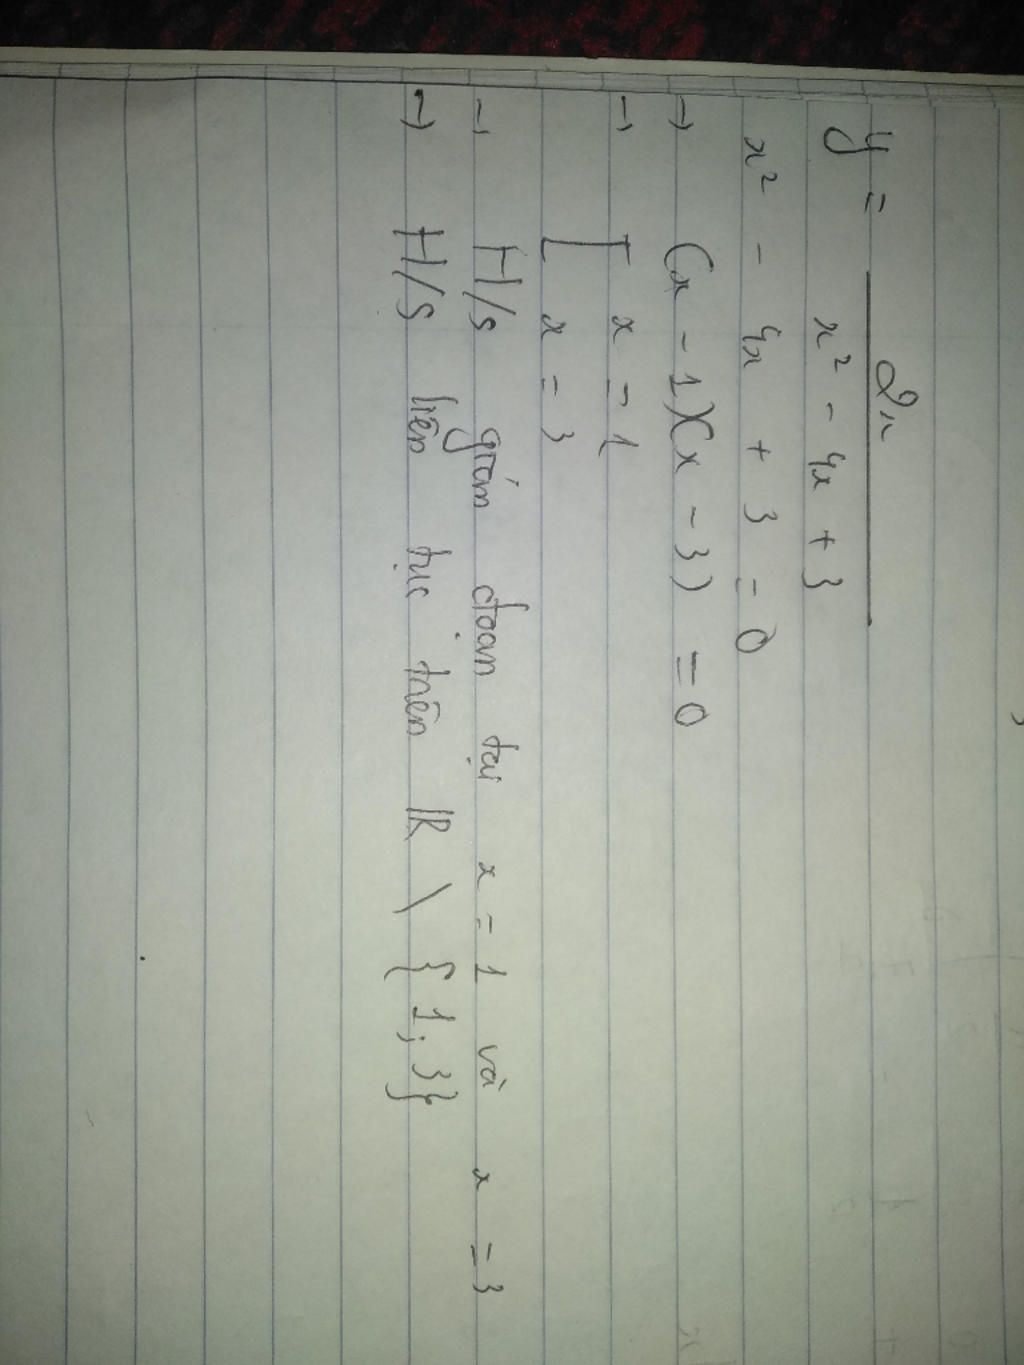 y = 2x / x² - 4x + 3
x² - 4x + 3 = 0
→ (x - 1)(x - 3) = 0
→ [ x = 1
[ x = 3
→ H/s gián đoạn tại x = 1 và x = 3
→ H/s liên tục trên ℝ \ { 1; 3}